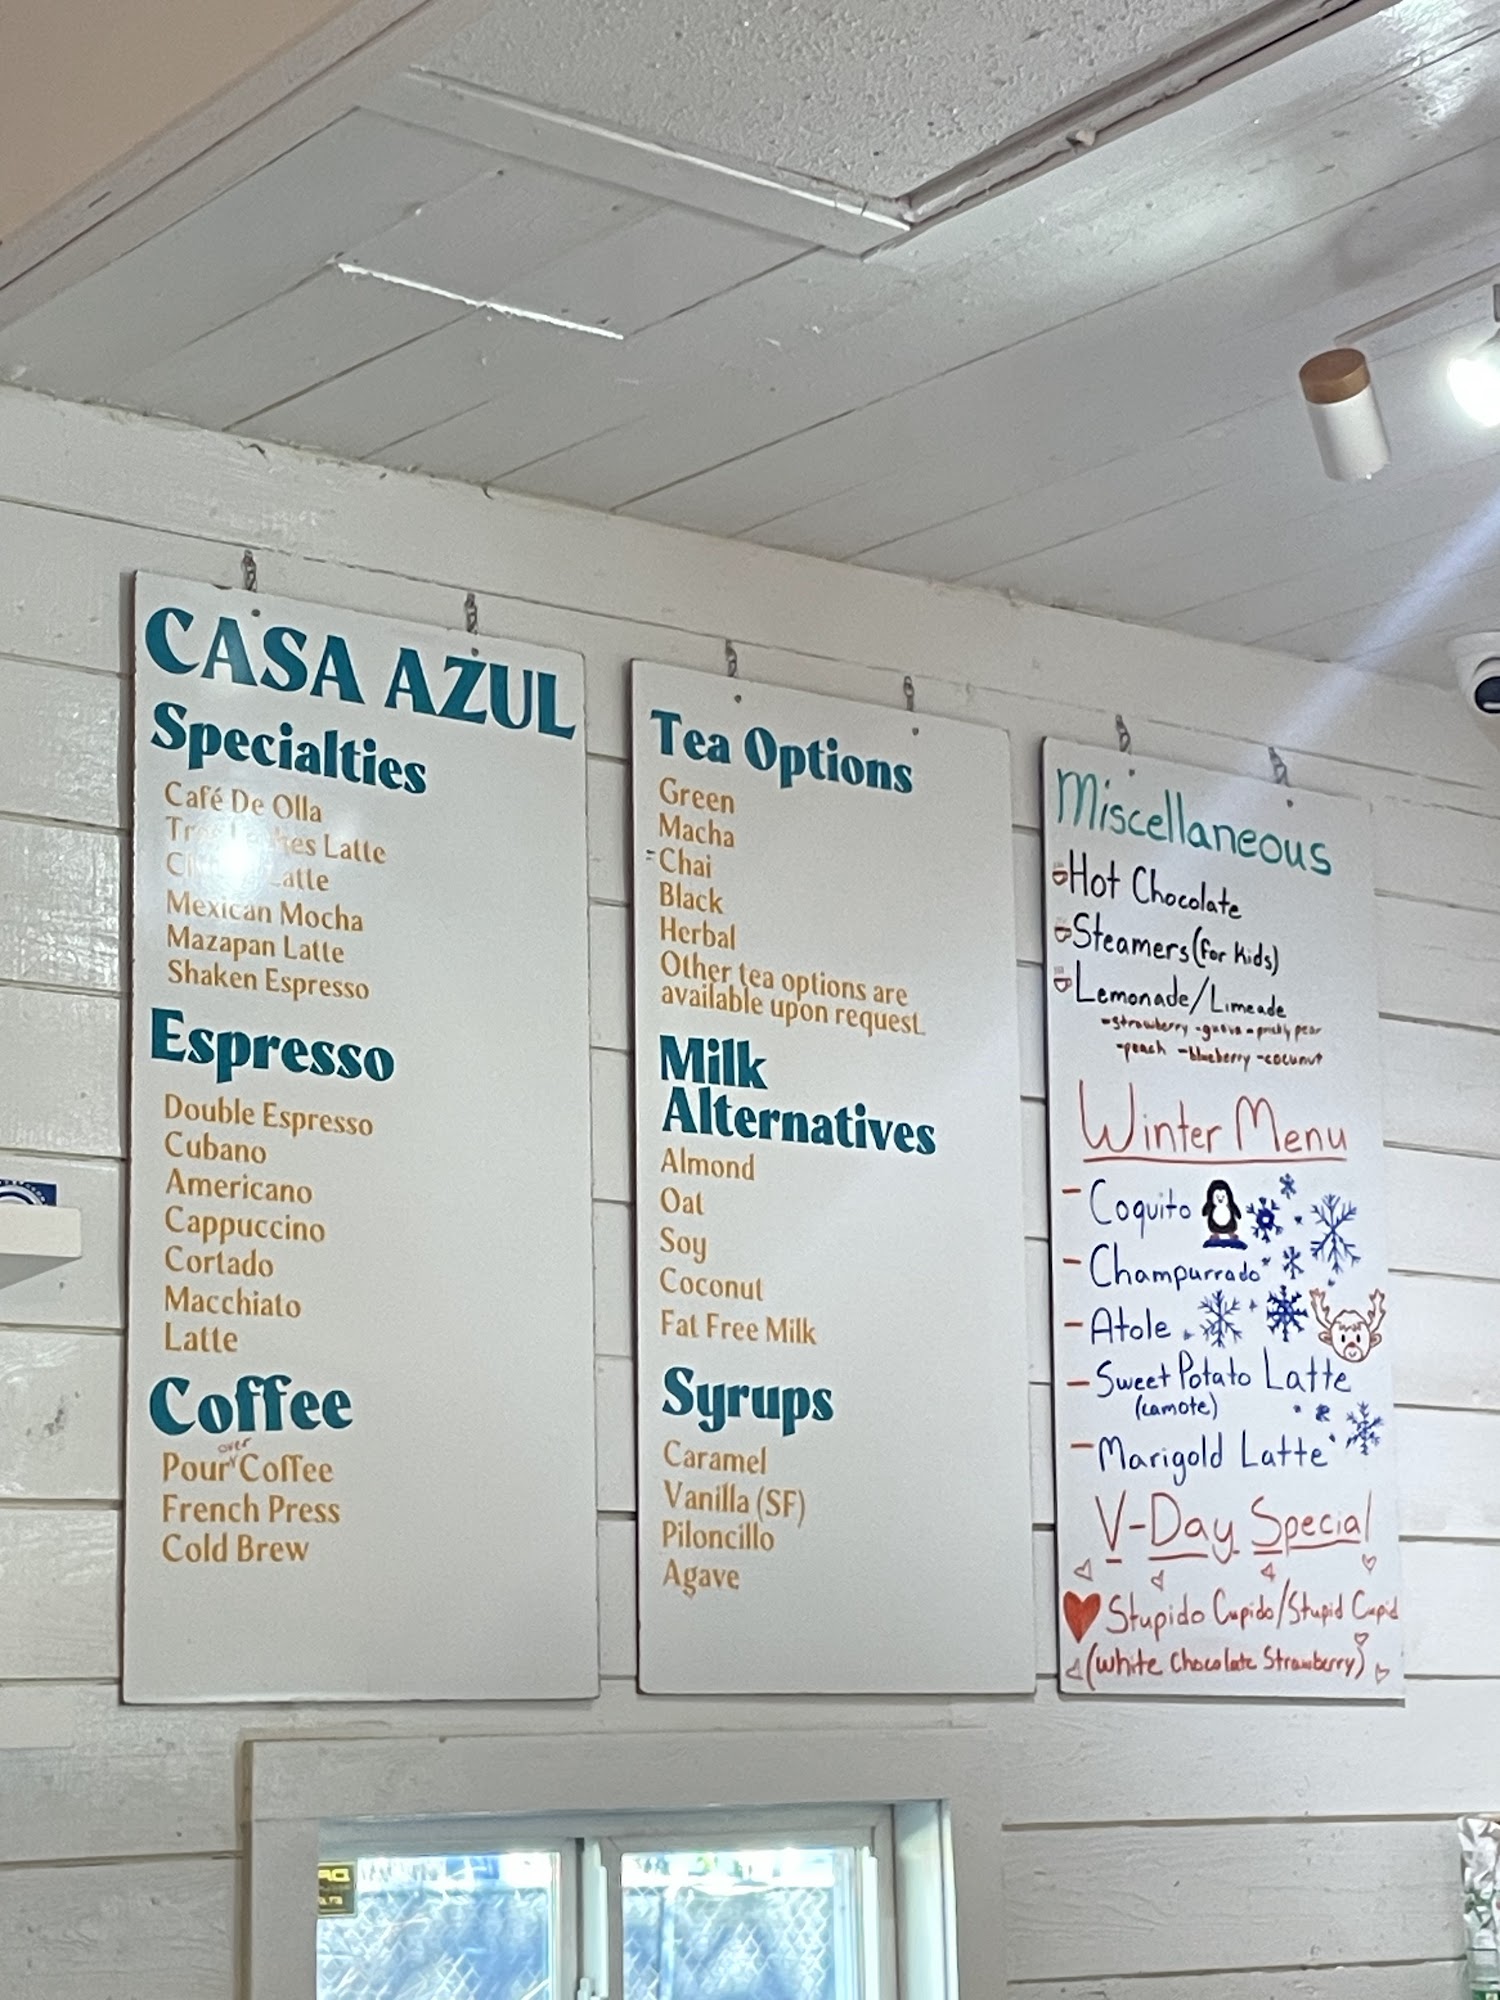 CASA AZUL
Specialties
Café De Olla
Latte
Latte
Mexican Mocha
Mazapan Latte
Shaken Espresso
Espresso
Double Espresso
Cubano
Americano
Cappuccino
Cortado
Macchiato
Latte
Coffee
Pour over Coffee
French Press
Cold Brew
Tea Options
Green
Macha
Chai
Black
Herbal
Other tea options are
available upon request.
Milk
Alternatives
Almond
Oat
Soy
Coconut
Fat Free Milk
Syrups
Caramel
Vanilla (SF)
Piloncillo
Agave
Miscellaneous
Hot Chocolate
Steamers (for kids)
Lemonade/Limeade
-strawberry -guava -prickly pear
-peach -blueberry -coconut
Winter Menu
- Coquito
- Champurrado
- Atole
- Sweet Potato Latte
(camote)
- Marigold Latte
V-Day Special
Stupido Cupido/Stupid Cupid
(White Chocolate Strawberry)